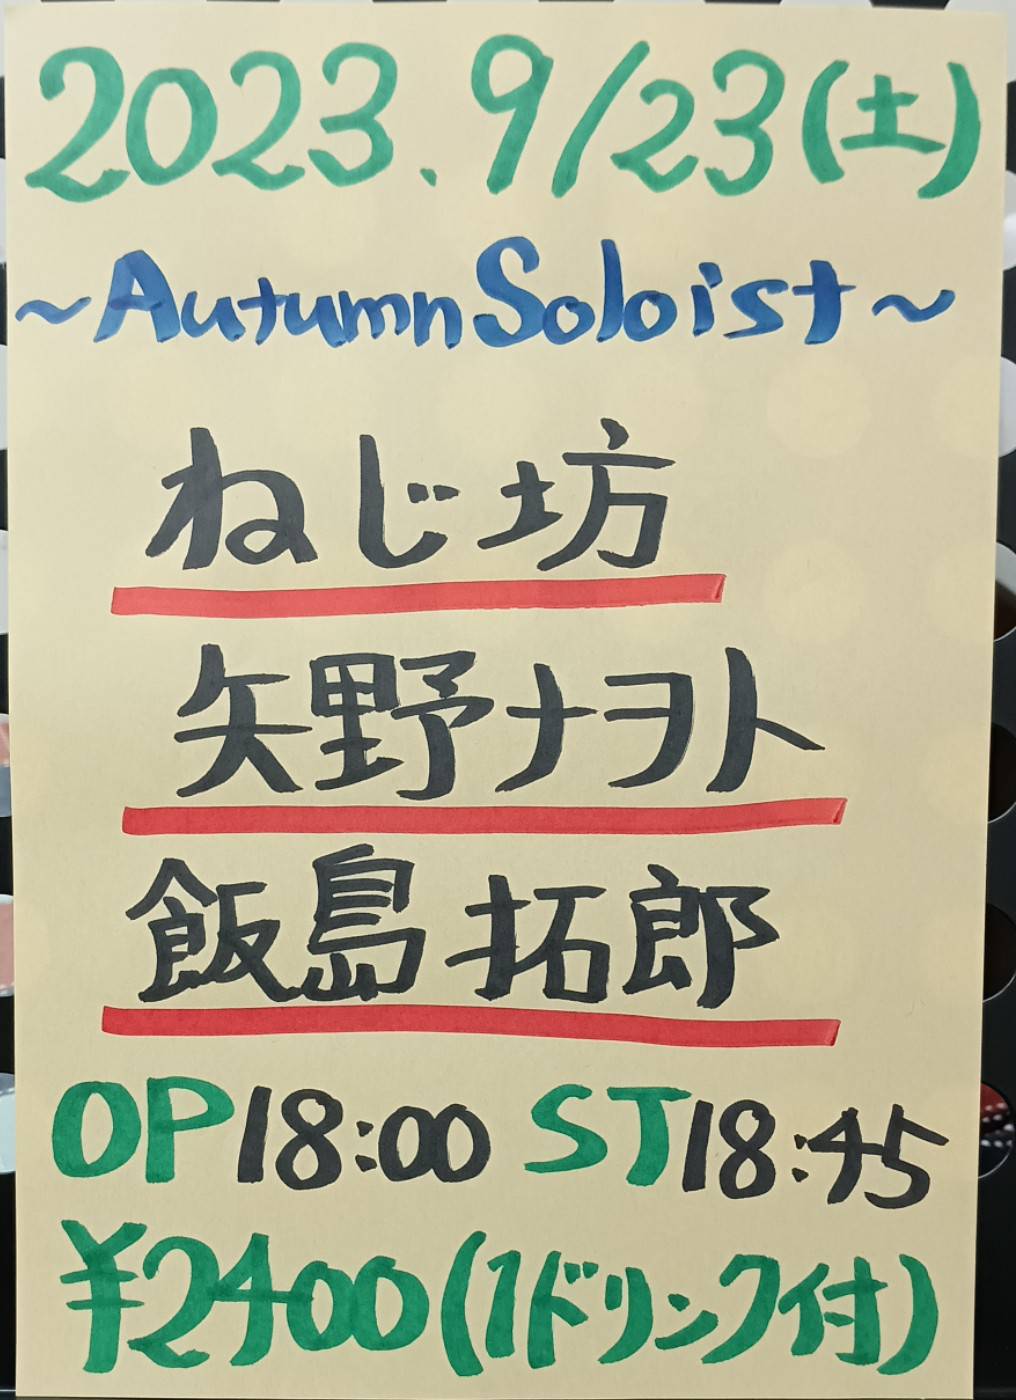 2023.9/23(土)
~Autumn Soloist~
ねじ坊
矢野ナヲト
飯島拓郎
OP18:00 ST18:45
¥2400(1ドリンク付)